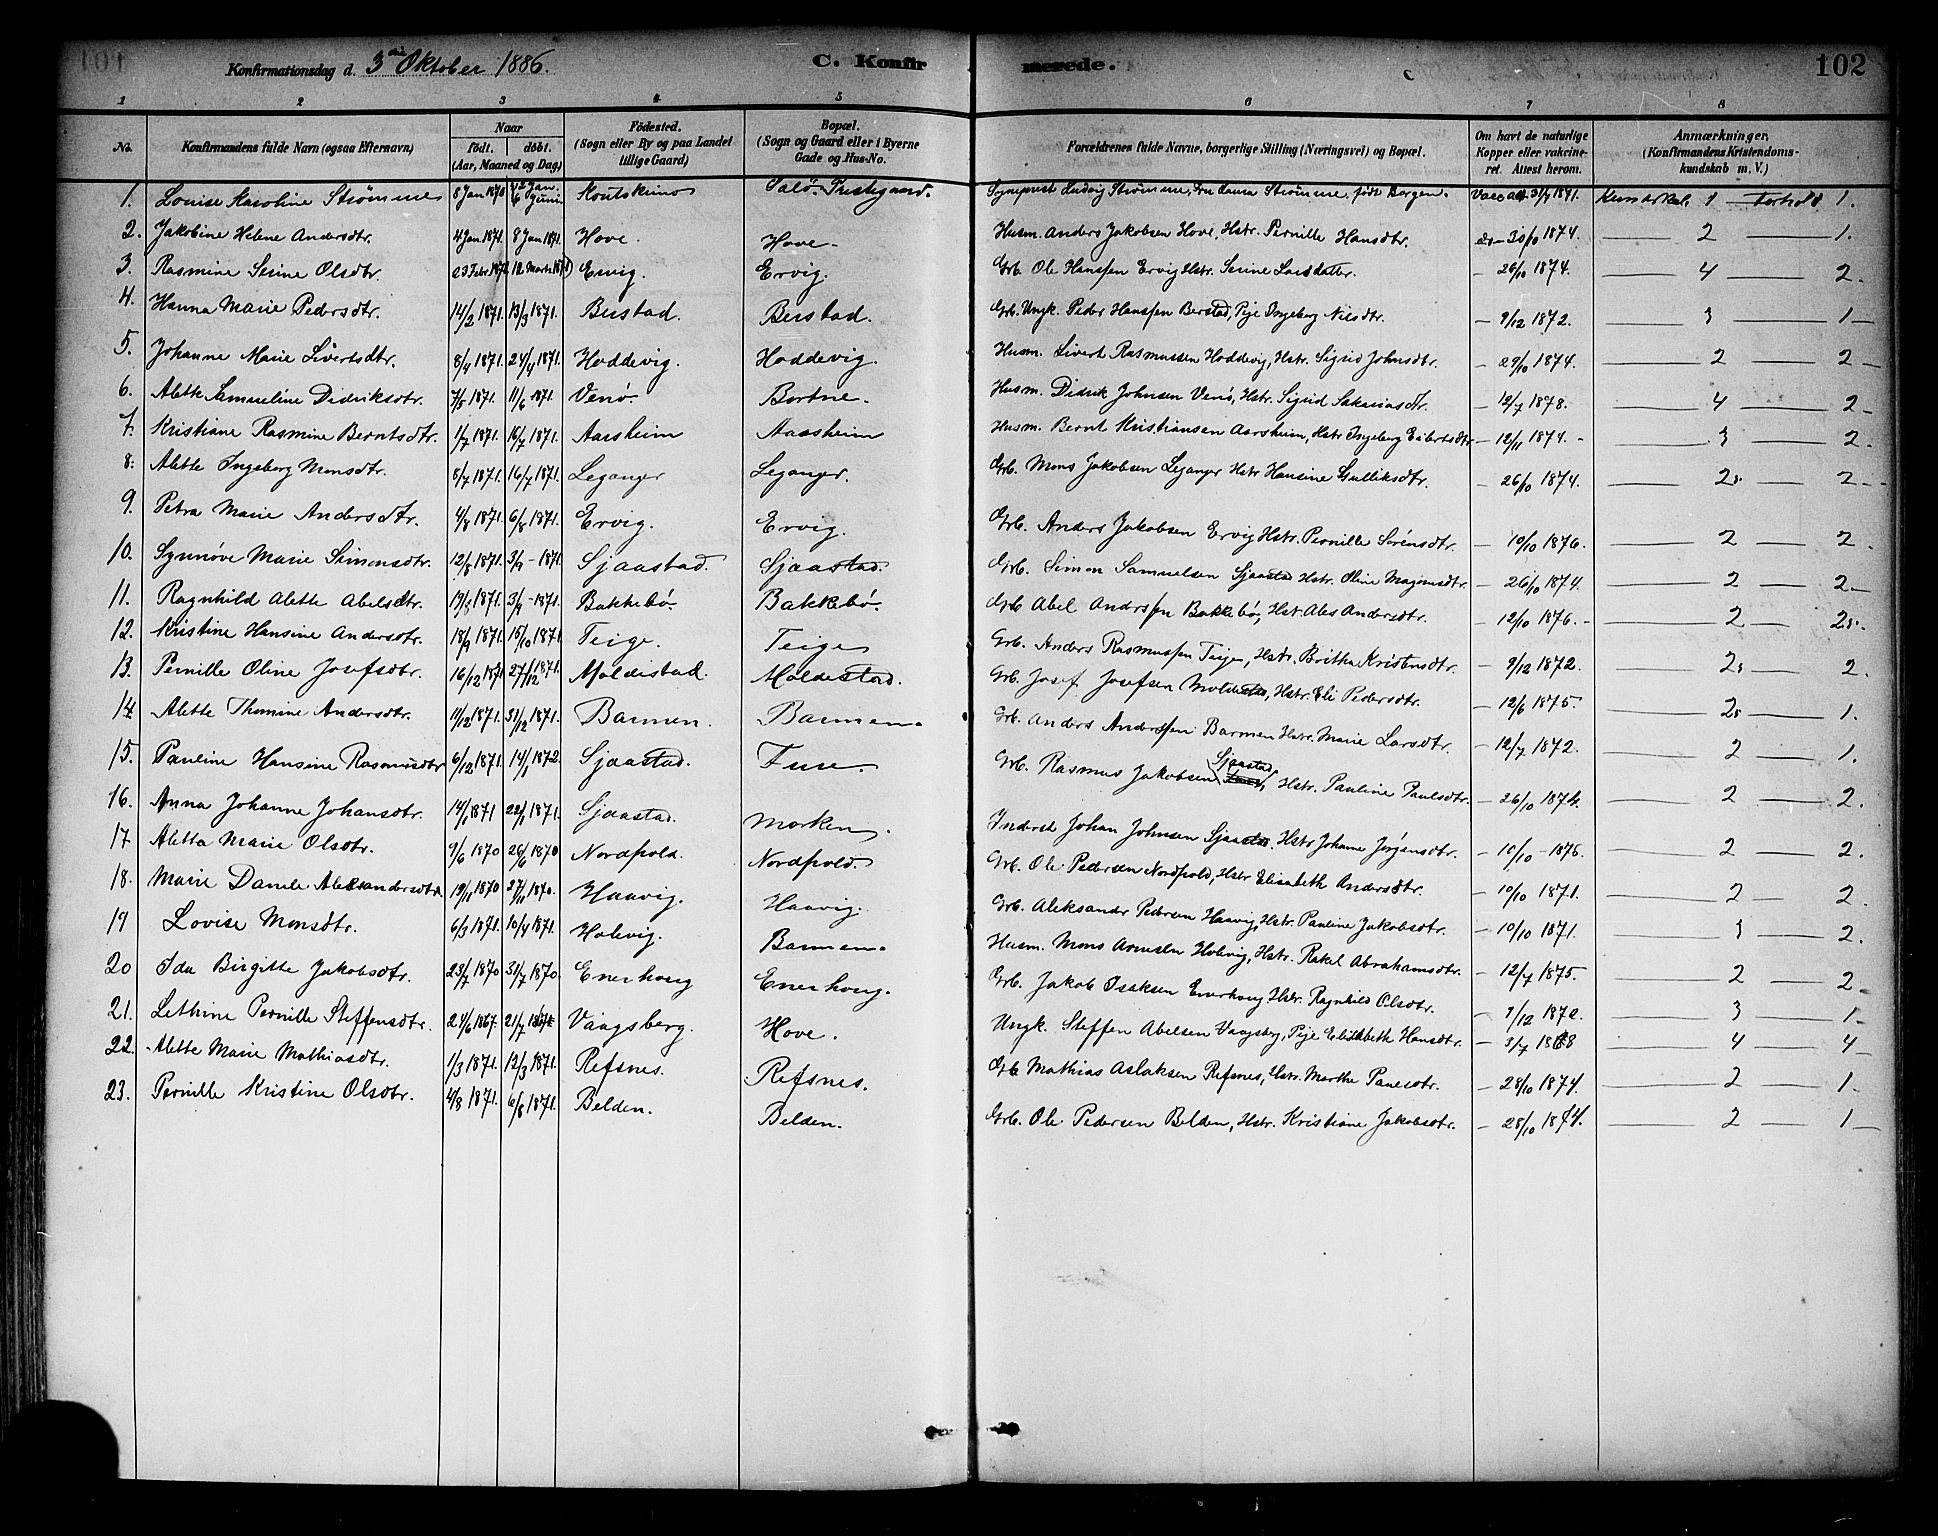 Konfirmationsdag d. 3die Oktober 1886. C. Konfirmerede. 102
1 2 3 4 5 6 7 8
No. Konfirmandens fulde Navn (ogsaa Efternavn) Naar født. døbt. (Aar, Maaned og Dag) Fødested. (Sogn eller By og paa Landet tillige Gaard) Bopæl. (Sogn og Gaard eller i Byerne Gade og Hus-No. Forældrenes fulde Navne, borgerlige Stilling (Næringsvei) og Bopæl. Om havt de naturlige Kopper eller vakcineret. Attest herom. Anmærkninger. (Konfirmandens Kristendomskundskab m. V.)
1. Louise Karoline Strømme 8 Jan 1870 Koutokeino Selø Prestegaard. Sogneprest Ludvig Strømme, Fru Laura Strømme, født Borgen. Vacc att 31/7 1871. Kundskab. 1 Forhold 1.
2. Jakobine Helene Andersdtr. 4 Jan. 1871. 8 Jan 1871. Hove. Hove. Husm. Anders Jakobsen Hove, Hstr. Pernille Hansdtr. do 30/10 1874. 2 1.
3. Rasmine Serine Olsdtr. 23 Febr 1871 12 Marts 1871 Ervig. Ervig. Grb. Ole Hansen Ervig Hstr. Serine Larsdatter. 26/10 1874. 4 2.
4. Hanna Marie Pedersdtr. 14/2 1871. 13/3 1871. Berstad. Berstad. Grb. Ungk. Peder Hanssen Berstad, Pige Ingeborg Nilsdtr. 9/12 1872. 3 1
5. Johanne Marie Sivertsdtr. 8/4 1871. 24/4 1871. Hoddevig. Hoddevig. Husm. Sivert Rasmussen Hoddevig, Hstr. Sigrid Johnsdtr. 29/10 1874. 2 2
6. Alette Samueline Didriksdtr. 7/5 1871. 11/6 1871. Venø. Bortne. Husm. Didrik Johnsen Venø, Hstr. Sigrid Sakariasdtr. 12/7 1878. 4 2
7. Kristiane Rasmine Berntsdtr. 1/7 1871. 16/7 1871. Aarsheim Aarsheim Husm. Bernt Kristiansen Aarsheim, Hstr Ingeborg Eilertsdtr 12/11 1874. 3 2.
8. Alette Ingeborg Monsdtr. 8/7 1871. 16/7 1871. Leganger Leganger. Grb. Mons Jakobsen Leganger Hstr Hansine Gulliksdtr. 26/10 1874. 2 2
9. Petra Marie Andersdtr. 4/8 1871. 6/8 1871. Ervig. Ervig. Grb. Anders Jakobsen Ervig Hstr. Pernille Sørensdtr. 10/10 1876. 2 2.
10. Synnøve Marie Simonsdtr. 12/8 1871. 3/9 1871. Sjaastad. Sjaastad. Grb. Simon Samuelsen Sjaastad Hstr. Oline Magnusdtr. 26/10 1874. 2 2
11. Ragnhild Alette Abelsdtr. 19/8 1871. 3/9 1871. Bakkebø. Bakkebø. Grb Abel Anderssen Bakkebø, Hstr. Ales Andersdtr. 12/10 1876. 2 2
12. Kristine Hansine Andersdtr. 18/9 1871. 15/10 1871. Teige. Teige Grb. Anders Rasmussen Teige, Hstr. Britha Kristensdtr. 9/12 1872. 2 2.
13. Pernille Oline Josefsdtr. 16/12 1871 27/12 1871. Moldestad. Moldestad. Grb. Josef Josefsen Moldestad, Hstr. Eli Pedersdtr. 12/6 1875. 2 1.
14. Alette Thomine Andersdtr. 11/12 1871. 31/12 1871. Barmen. Barmen. Grb. Anders Anderssen Barmen Hstr. Marie Larsdtr. 12/7 1872. 2 1.
15. Pauline Hansine Rasmusdtr 6/12 1871. 14/1 1872. Sjaastad. Fure. Grb. Rasmus Jakobsen Sjaastad, Hstr. Pauline Paulsdtr. 26/10 1874. 2 2.
16. Anna Johanne Johansdtr. 14/1 1871 22/1 1871. Sjaastad. Morken. Inderst Johan Johnsen Sjaastad. Hstr Johanne Jørgensdtr. 10/10 1876. 2 2.
17 Aletta Marie Olsdtr. 9/6 1870 26/6 1870 Nordpold. Nordpold. Grb. Ole Pedersen Nordpold, Hstr Elisabeth Andersdtr. 10/10 1871. 2 2.
18. Marie Danele Aleksandersdtr 19/11 1870 27/11 1870. Haavig. Haavig. Grb. Aleksander Pedersen Haavig, Hstr. Pauline Jakobsdtr. 10/10 1871. 3 2.
19 Lovise Monsdtr. 6/3 1871. 10/4 1871. Holevig. Barmen. Husm. Mons Arnesen Holevig, Hstr. Rakel Abrahamsdtr. 12/7 1875. 2 2
20 Ida Birgitte Jakobsdtr. 23/7 1870 31/7 1870. Enerhoug Enerhoug. Grb. Jakob Isaksen Enerhoug Hstr. Ragnhild Olsdtr. 9/12 1872. 3 1
21. Lethine Pernille Steffensdtr. 24/6 1867. 21/7 1867 Vaagsberg. Hove. Ungk. Steffen Abelsen Vaagsberg, Pige Elisabeth Hansdtr. 3/7 1868 4 4
22. Alette Marie Mathiasdtr. 1/3 1871. 12/3 1871. Refsnes. Refsnes. Grb Mathias Aslaksen Refsnes, Hstr. Marthe Paulsdtr. 28/10 1874. 2 1.
23. Pernille Kristine Olsdtr. 4/8 1871. 6/8 1871. Belden. Belden. Grb. Ole Pedersen Belden, Hstr. Kristiane Jakobsdtr. 28/10 1874. 2 1